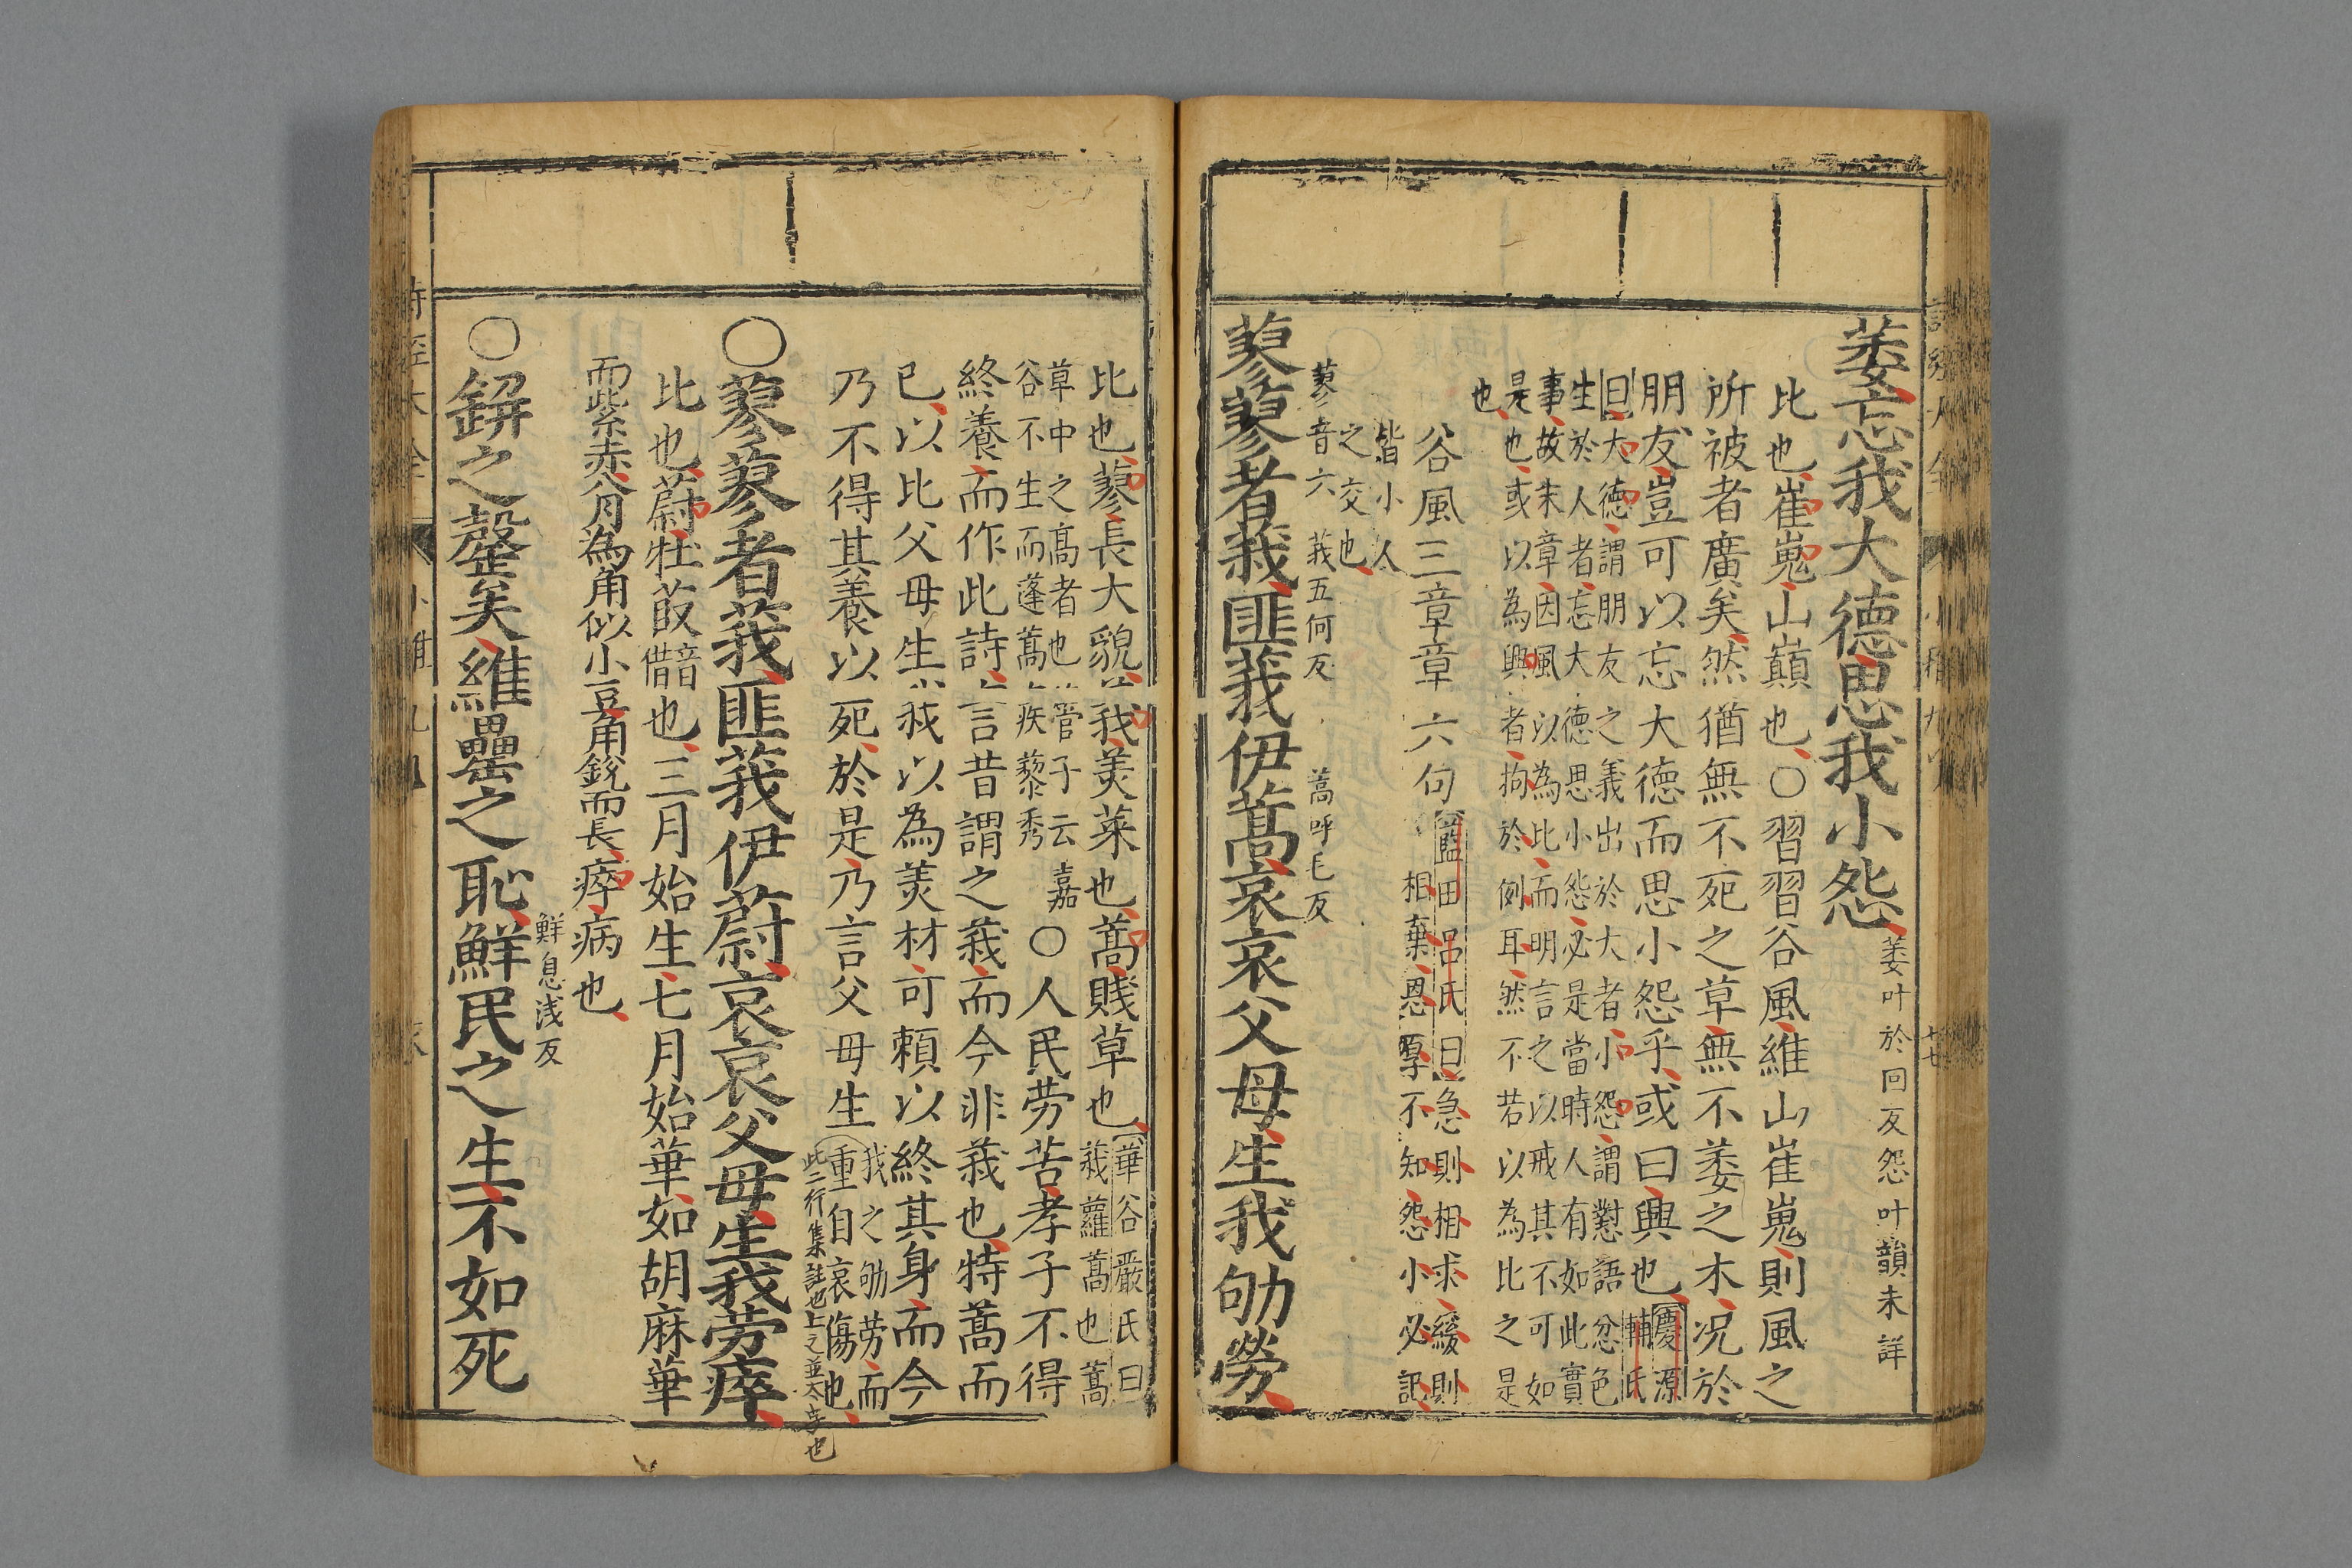 萎忘我大德思我小怨萎叶於回反怨叶韻未詳
比也崔嵬山巔也○習習谷風維山崔嵬則風之
所被者廣矣然猶無不死之草無不萎之木况於
朋友豈可以忘大德而思小怨乎或曰興也慶源
輔氏
曰大德謂朋友之義出於大者小怨謂懟語忿色
生於人者忘大德思小怨必是當時人有如此實
事故末章因風以為比而明言之以戒其不可如
是也或以為興者拘於例耳然不若以為比之是
也
谷風三章章六句藍田呂氏曰急則相求緩則
相棄恩厚不知怨小必記
皆小人
之交也
蓼音六 莪五何反 蒿呼毛反
蓼蓼者莪匪莪伊蒿哀哀父母生我劬勞
比也蓼長大貌莪美菜也蒿賤草也華谷嚴氏曰
莪蘿蒿也蒿
草中之高者也管子云嘉
谷不生而蓬蒿疾藜秀
○人民劳苦孝子不得
終養而作此詩言昔謂之莪而今非莪也特蒿而
已以比父母生我以為美材可頼以終其身而今
乃不得其養以死於是乃言父母生我之劬劳而
重自哀傷也
此二行集註也上之並大字也
○蓼蓼者莪匪莪伊蔚哀哀父母生我劳瘁
比也蔚牡菣音借也三月始生七月始華如胡麻華
而紫赤八月為角似小豆角銳而長瘁病也
鮮息浅反
○缾之罄矣維罍之恥鮮民之生不如死